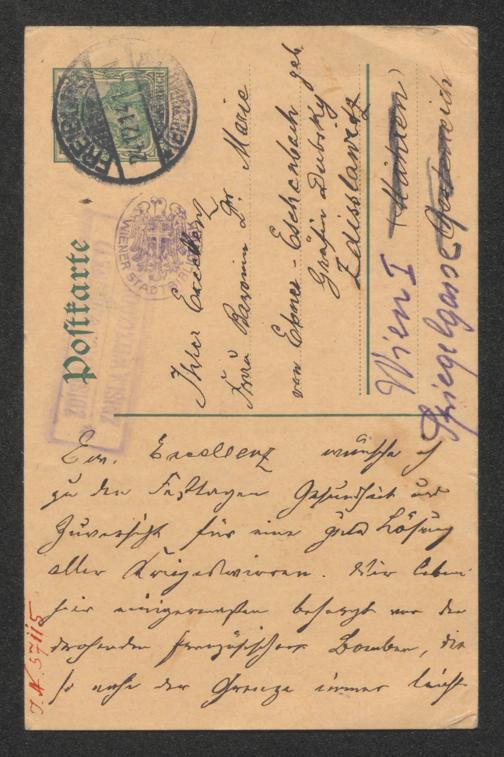 Postkarte
Ihrer Excellenz
Frau Baronin Dr. Marie
von Ebner-Eschenbach geb.
Gräfin Dubsky
Zdisslawitz
(Mähren)
Österreich
Wien I
Spiegelgasse
WIENER STADT
FREIB
Ew. Excellenz wünsche ich
zu den Festtagen Gesundheit und
Zuversicht für eine gute Lösung
aller Kriegswirren. Wir leben
hier einigermaßen besorgt vor den
drohenden französischen Bomben, die
so nahe der Grenze immer leicht
J.N. 57115